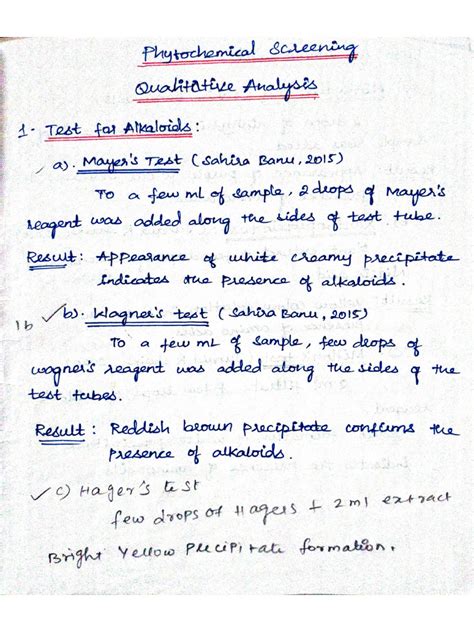 Phytochemical Screening
Qualitative Analysis
1. Test for Alkaloids:
a). Mayer's Test (Sahira Banu, 2015)
To a few ml of sample, 2 drops of Mayer's
reagent was added along the sides of test tube.
Result: Appearance of white creamy precipitate
indicates the presence of alkaloids.
1b ✓b). Wagner's test (Sahira Banu, 2015)
To a few ml of sample, few drops of
wagner's reagent was added along the sides of the
test tubes.
Result: Reddish brown precipitate confirms the
presence of alkaloids.
✓ c) Hager's test
few drops of Hagers + 2ml extract
Bright Yellow Precipitate formation.